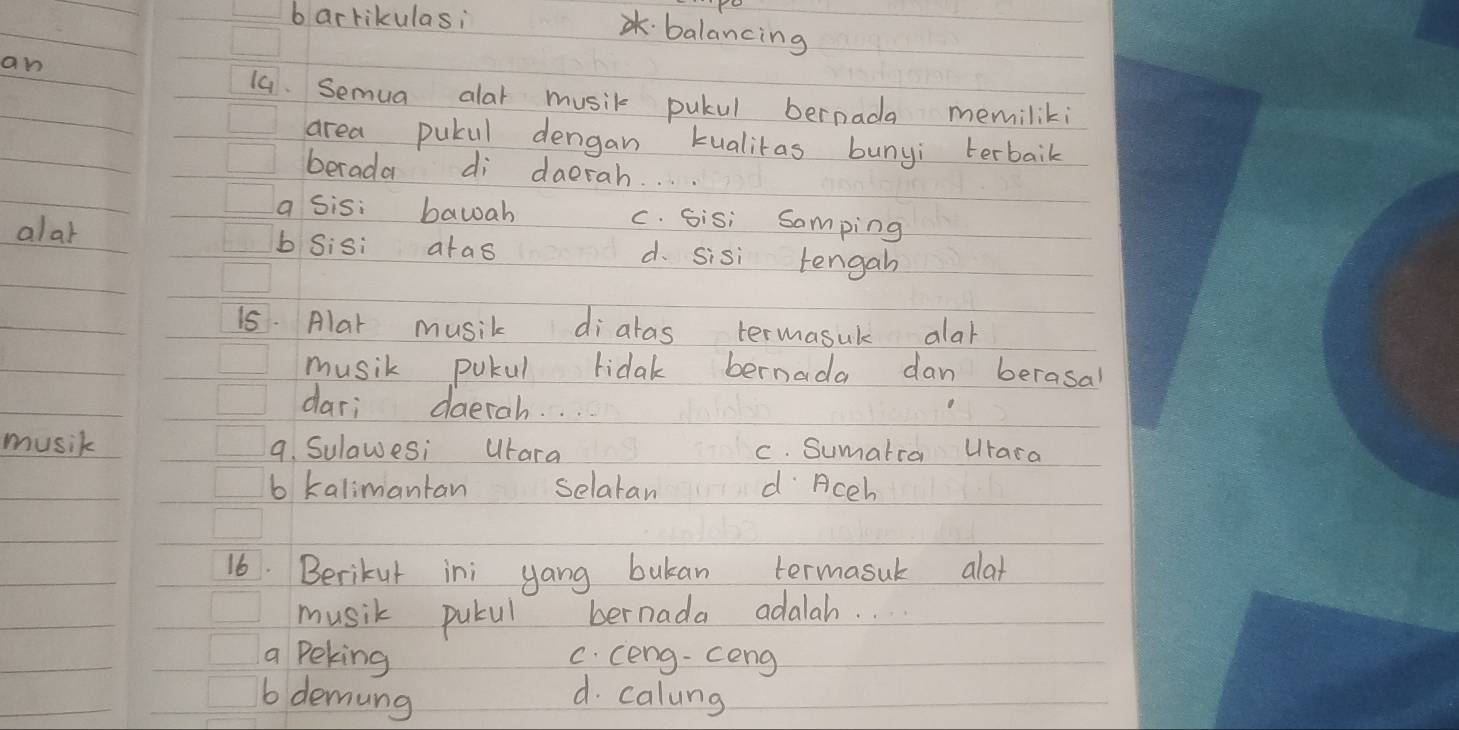 b artikulasi d. balancing
an
14. Semua alat musik pukul bernada memiliki
area pukul dengan kualitas bunyi terbaik
berada di daerah....
a sisi bawah c. sisi samping
alat
b sisi atas d. sisi tengah
15. Alat musik diatas termasuk alat
musik pukul tidak bernada dan berasal
dari daerah....
musik
a. Sulawesi Utara c. Sumatra Utara
b kalimantan selatan d Aceh
16. Berikut ini yang bukan termasuk alat
musik pukul bernada adalah....
a Peking c. ceng-ceng
b demung d. calung